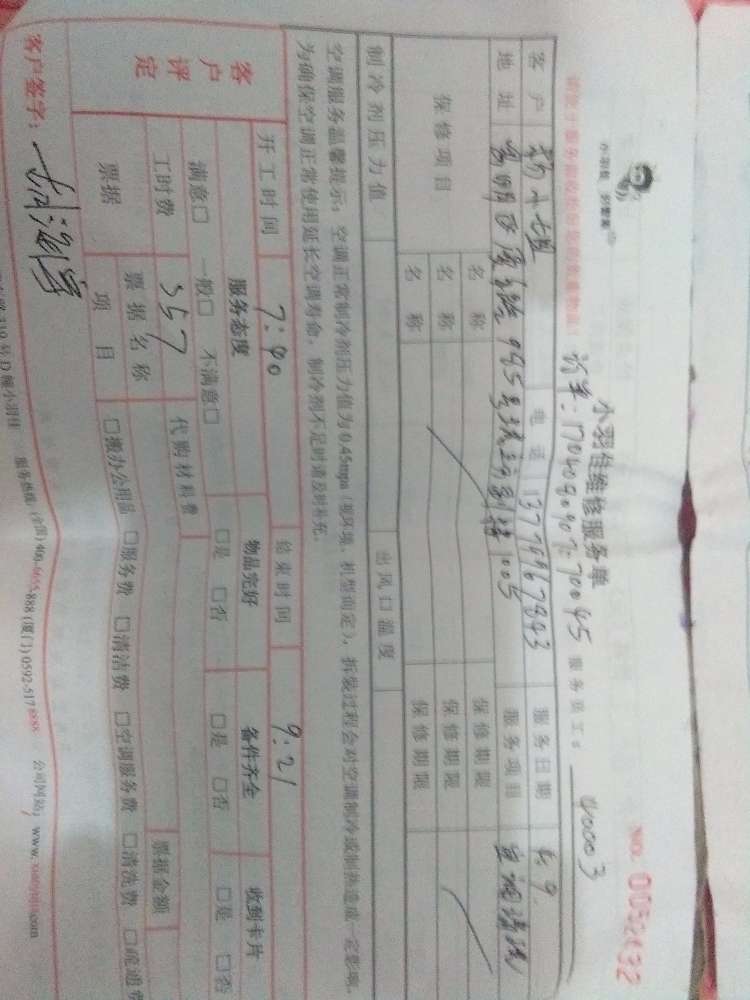 小羽佳维修服务单
NO: 0052632
服务员工: 00003
客户
电话 13779967843
服务日期 5.9
地址
服务项目 空调清洗
保修项目
名称
保修期限
名称
保修期限
名称
保修期限
制冷剂压力值
出风口温度
空调服务温馨提示:空调正常制冷剂压力值为0.45mpa(视环境、机型而定),拆装过程会对空调制冷或制热造成一定影响,
为确保空调正常使用延长空调寿命,制冷剂不足时请及时补充。
开工时间 7:40
结束时间 9:21
客户评定
服务态度
物品完好
备件齐全
收到卡片
满意□ 一般□ 不满意□
□是 □否
□是 □否
□是 □否
工时费 557
代购材料费
票据
票据名称
票据金额
项目
□搬办公用品 □服务费 □清洁费 □空调服务费 □清洗费 □疏通费
客户签字:
号D幢小羽佳 服务热线:(全国)400-6655-888 (厦门)0592-5178888 公司网站:www.xiaoyujia.com